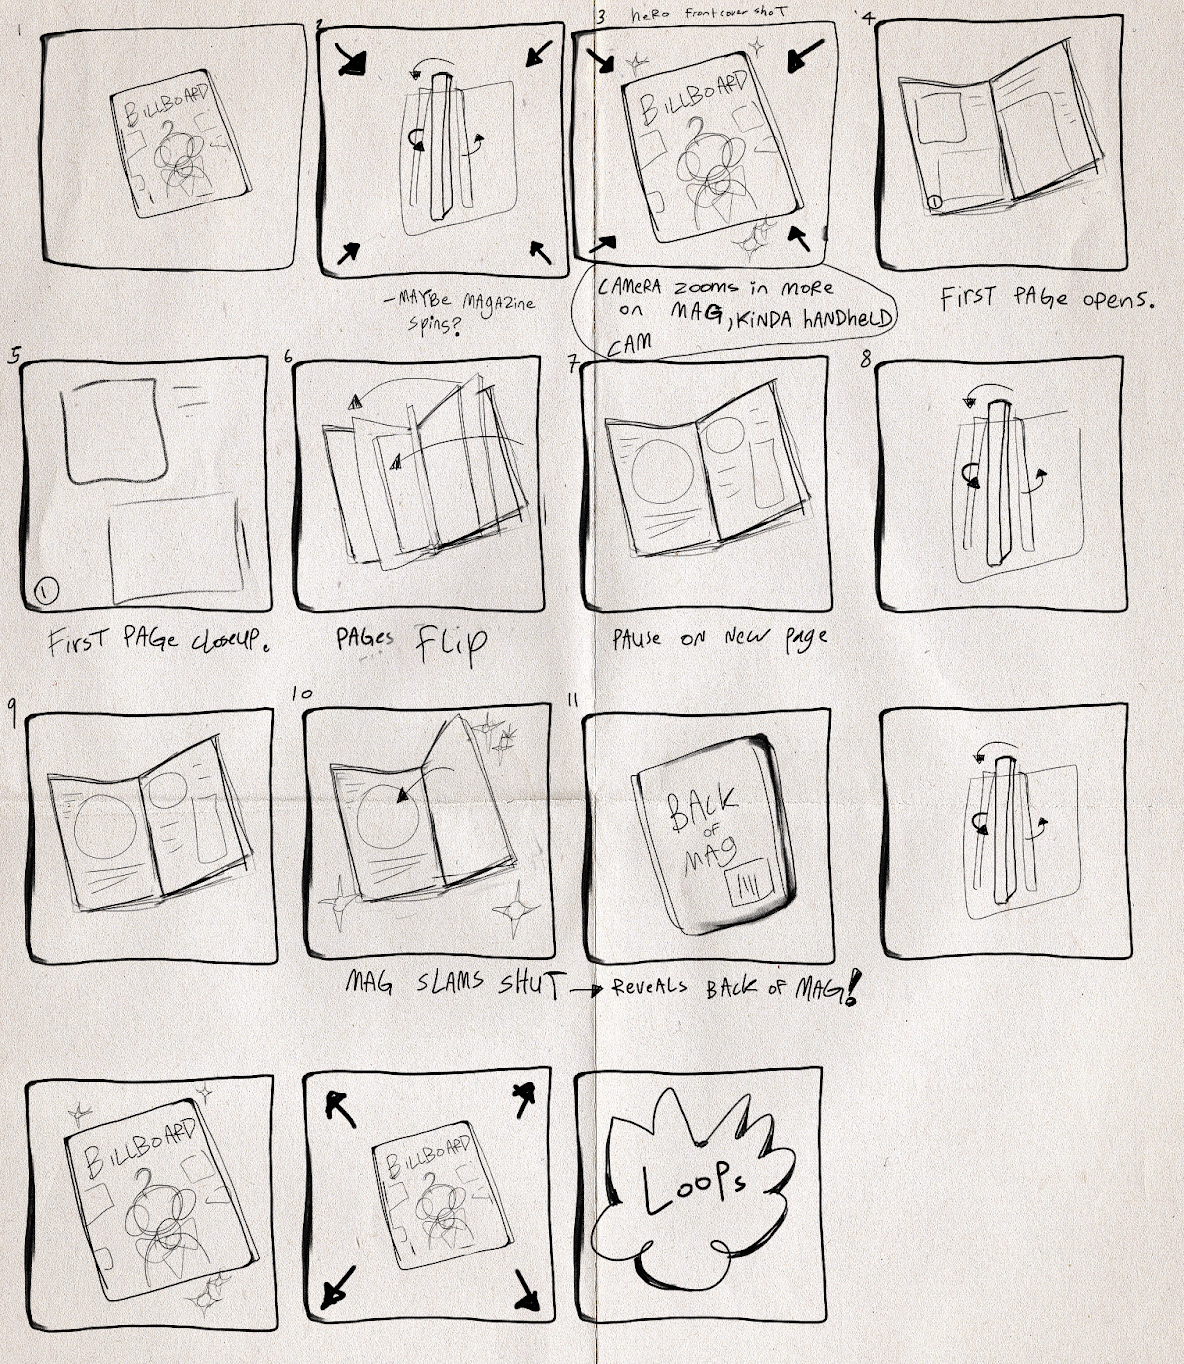 1
BILLBOARD
2
- MAYBE MAGAZINE
spins?
3 heRo front cover shoT
BILLBOARD
CAMeRA zooms in moRe
on MAG, KINDA hANDheLD
CAM
4
1
FirsT PAGe opens.
5
1
FirsT PAGe closeup.
6
PAGes fLip
7
PAUse on New page
8
9
10
MAG SLAMS SHUT → ReveALs BACK of MAG!
11
BACK
OF
MAG
BILLBOARD
BILLBOARD
LooPs